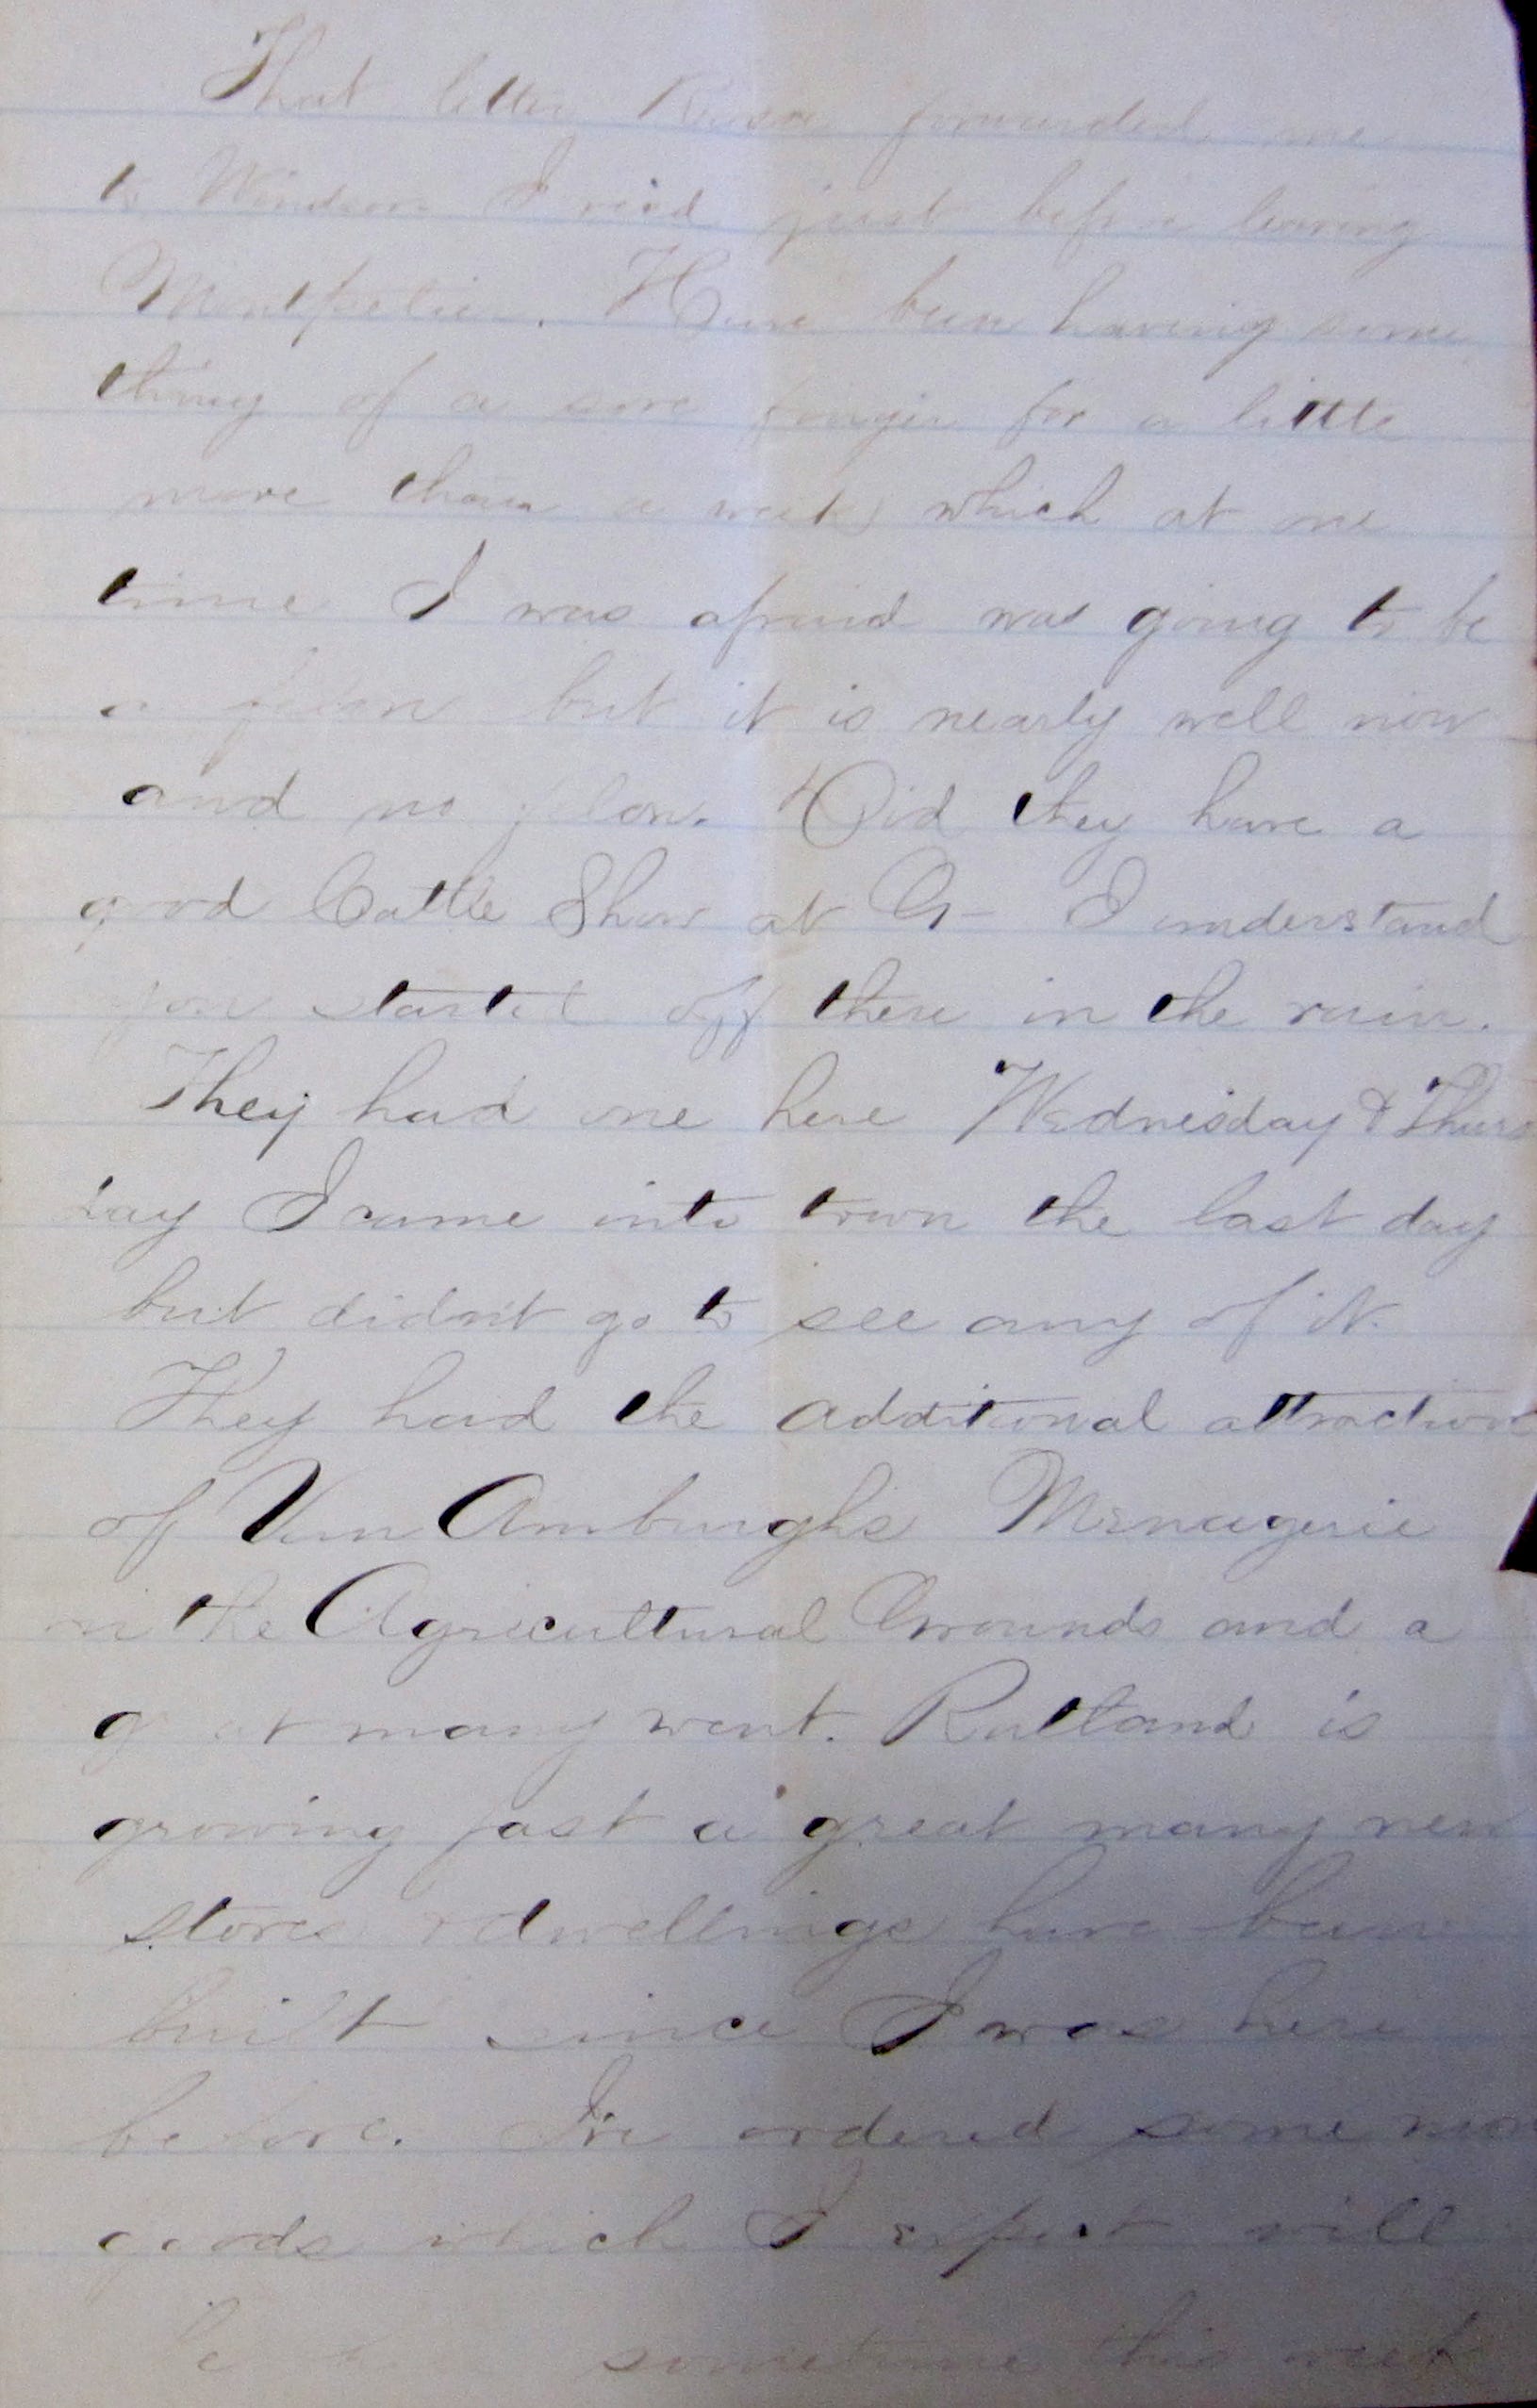 That letter forwarded me
to Windsor I rec'd just before leaving
Montpelier. Have been having some
thing of a sore finger for a little
more than a week which at one
time I was afraid was going to be
a felon but it is nearly well now
and no felon. Did they have a
good Cattle Show at G- I understand
you started off there in the rain.
They had one here Wednesday & Thurs
day I came into town the last day
but didn't go to see any of it.
They had the additional attraction
of Van Amburghs Menagerie
on the Agricultural Grounds and a
great many went. Rutland is
growing fast a great many new
stores & dwellings have been
built since I was here
before. I've ordered some mor
goods which I expect will
be sometime this week